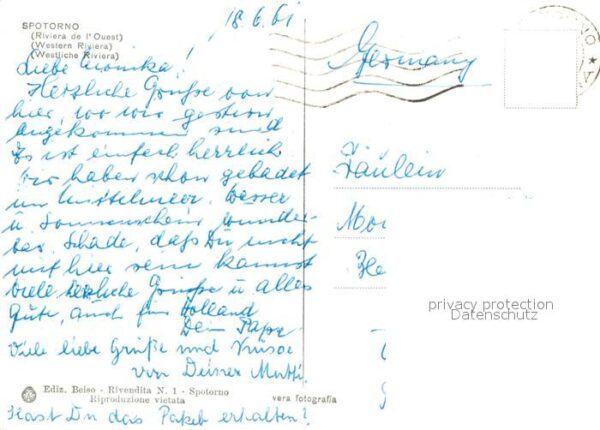 18.6.61
SPOTORNO
(Riviera de l'Ouest)
(Western Riviera)
(Westliche Riviera)
Germany
Liebe Monika!
Herzliche Grüße von
hier, wo wir gestern
angekommen sind
Es ist einfach herrlich
wir haben schon gebadet
im Mittelmeer. Wasser
u. Sonnenschein wunder-
bar. Schade, daß Du nicht
mit hier sein kannst
Viele herzliche Grüße u alles
Gute, auch für Holland
Dein Papa
Viele liebe Grüße und
von Deiner Mutti.
Fräulein
Mo
privacy protection
Datenschutz
Ediz. Beiso - Rivendita N. 1 - Spotorno
Riproduzione vietata
vera fotografia
Hast Du das Paket erhalten?